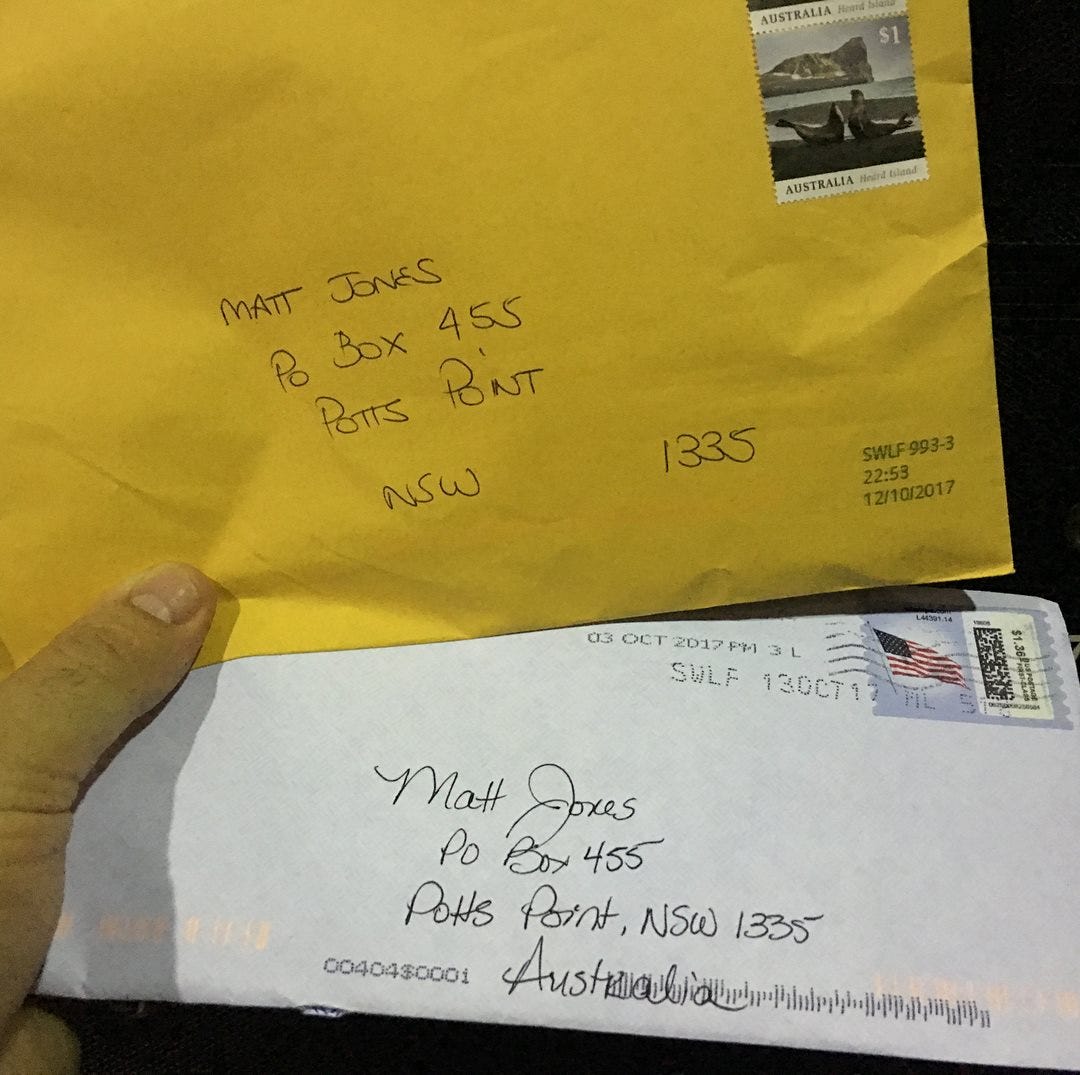 AUSTRALIA Heard Island
$1
AUSTRALIA Heard Island
MATT JONES
PO BOX 455
POTTS POINT
NSW 1335
SWLF 993-3
22:53
12/10/2017
L44391.14
03 OCT 2017 PM 3 L
SWLF 13OCT17 ML
$1.36 US POSTAGE
FIRST-CLASS
Matt Jones
PO Box 455
Potts Point, NSW 1335
Australia
00404$0001